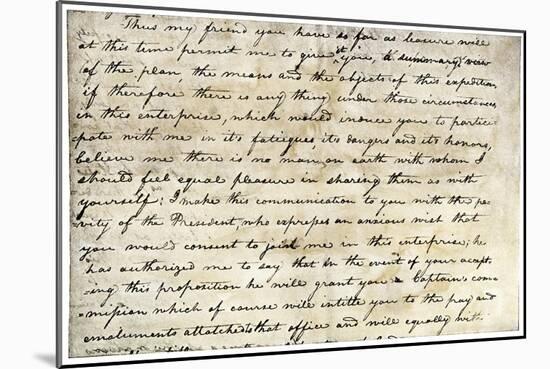 Thus my friend you have so far as leasure will
at this time permit me to give it you, a summary view
of the plan, the means and the objects of this expedition.
if therefore there is any thing under those circumstances,
in this enterprise, which would induce you to partici=
pate with me in it's fatiegues, it's dangers and it's honors,
believe me there is no man on earth with whom I
should feel equal pleasure in sharing them as with
yourself; I make this communication to you with the pri-
vity of the President, who expresses an anxious wish that
you would consent to join me in this enterprise; he
has authorized me to say that in the event of your accept-
-ing this proposition he will grant you a Captain's com=
=mission which of course will intitle you to the pay and
emoluments attatched to that office and will equally with